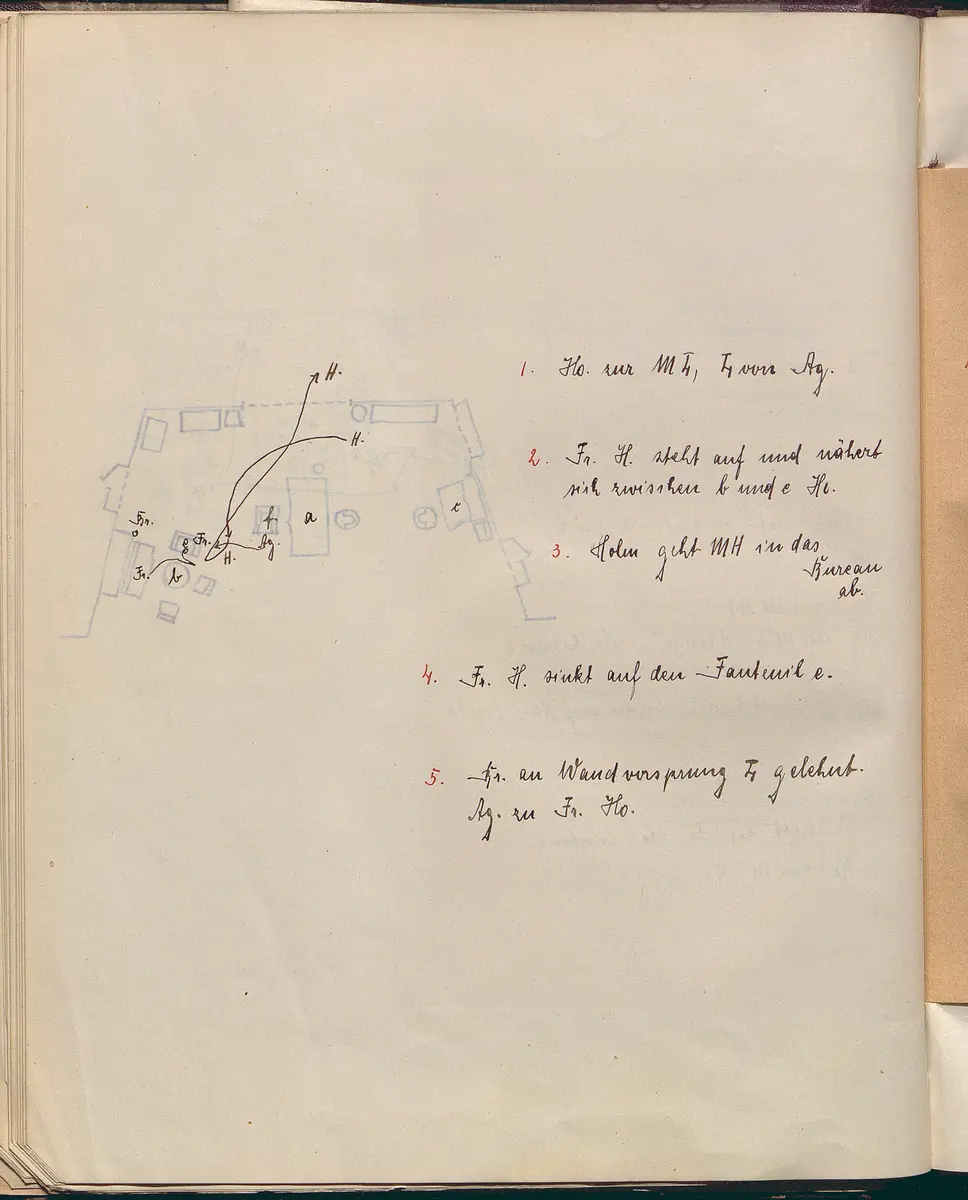 H.
H.
a
c
f
Kr.
Fr.
Ag.
H.
Fr.
b
1. Ho. zur M L, L von Ag.
2. Fr. H. steht auf und nähert
sich zwischen b und e Ho.
3. Holm geht MH in das
Bureau
ab.
4. Fr. H. sinkt auf den Fauteuil e.
5. Kr. an Wandvorsprung L gelehnt.
Ag. zu Fr. Ho.